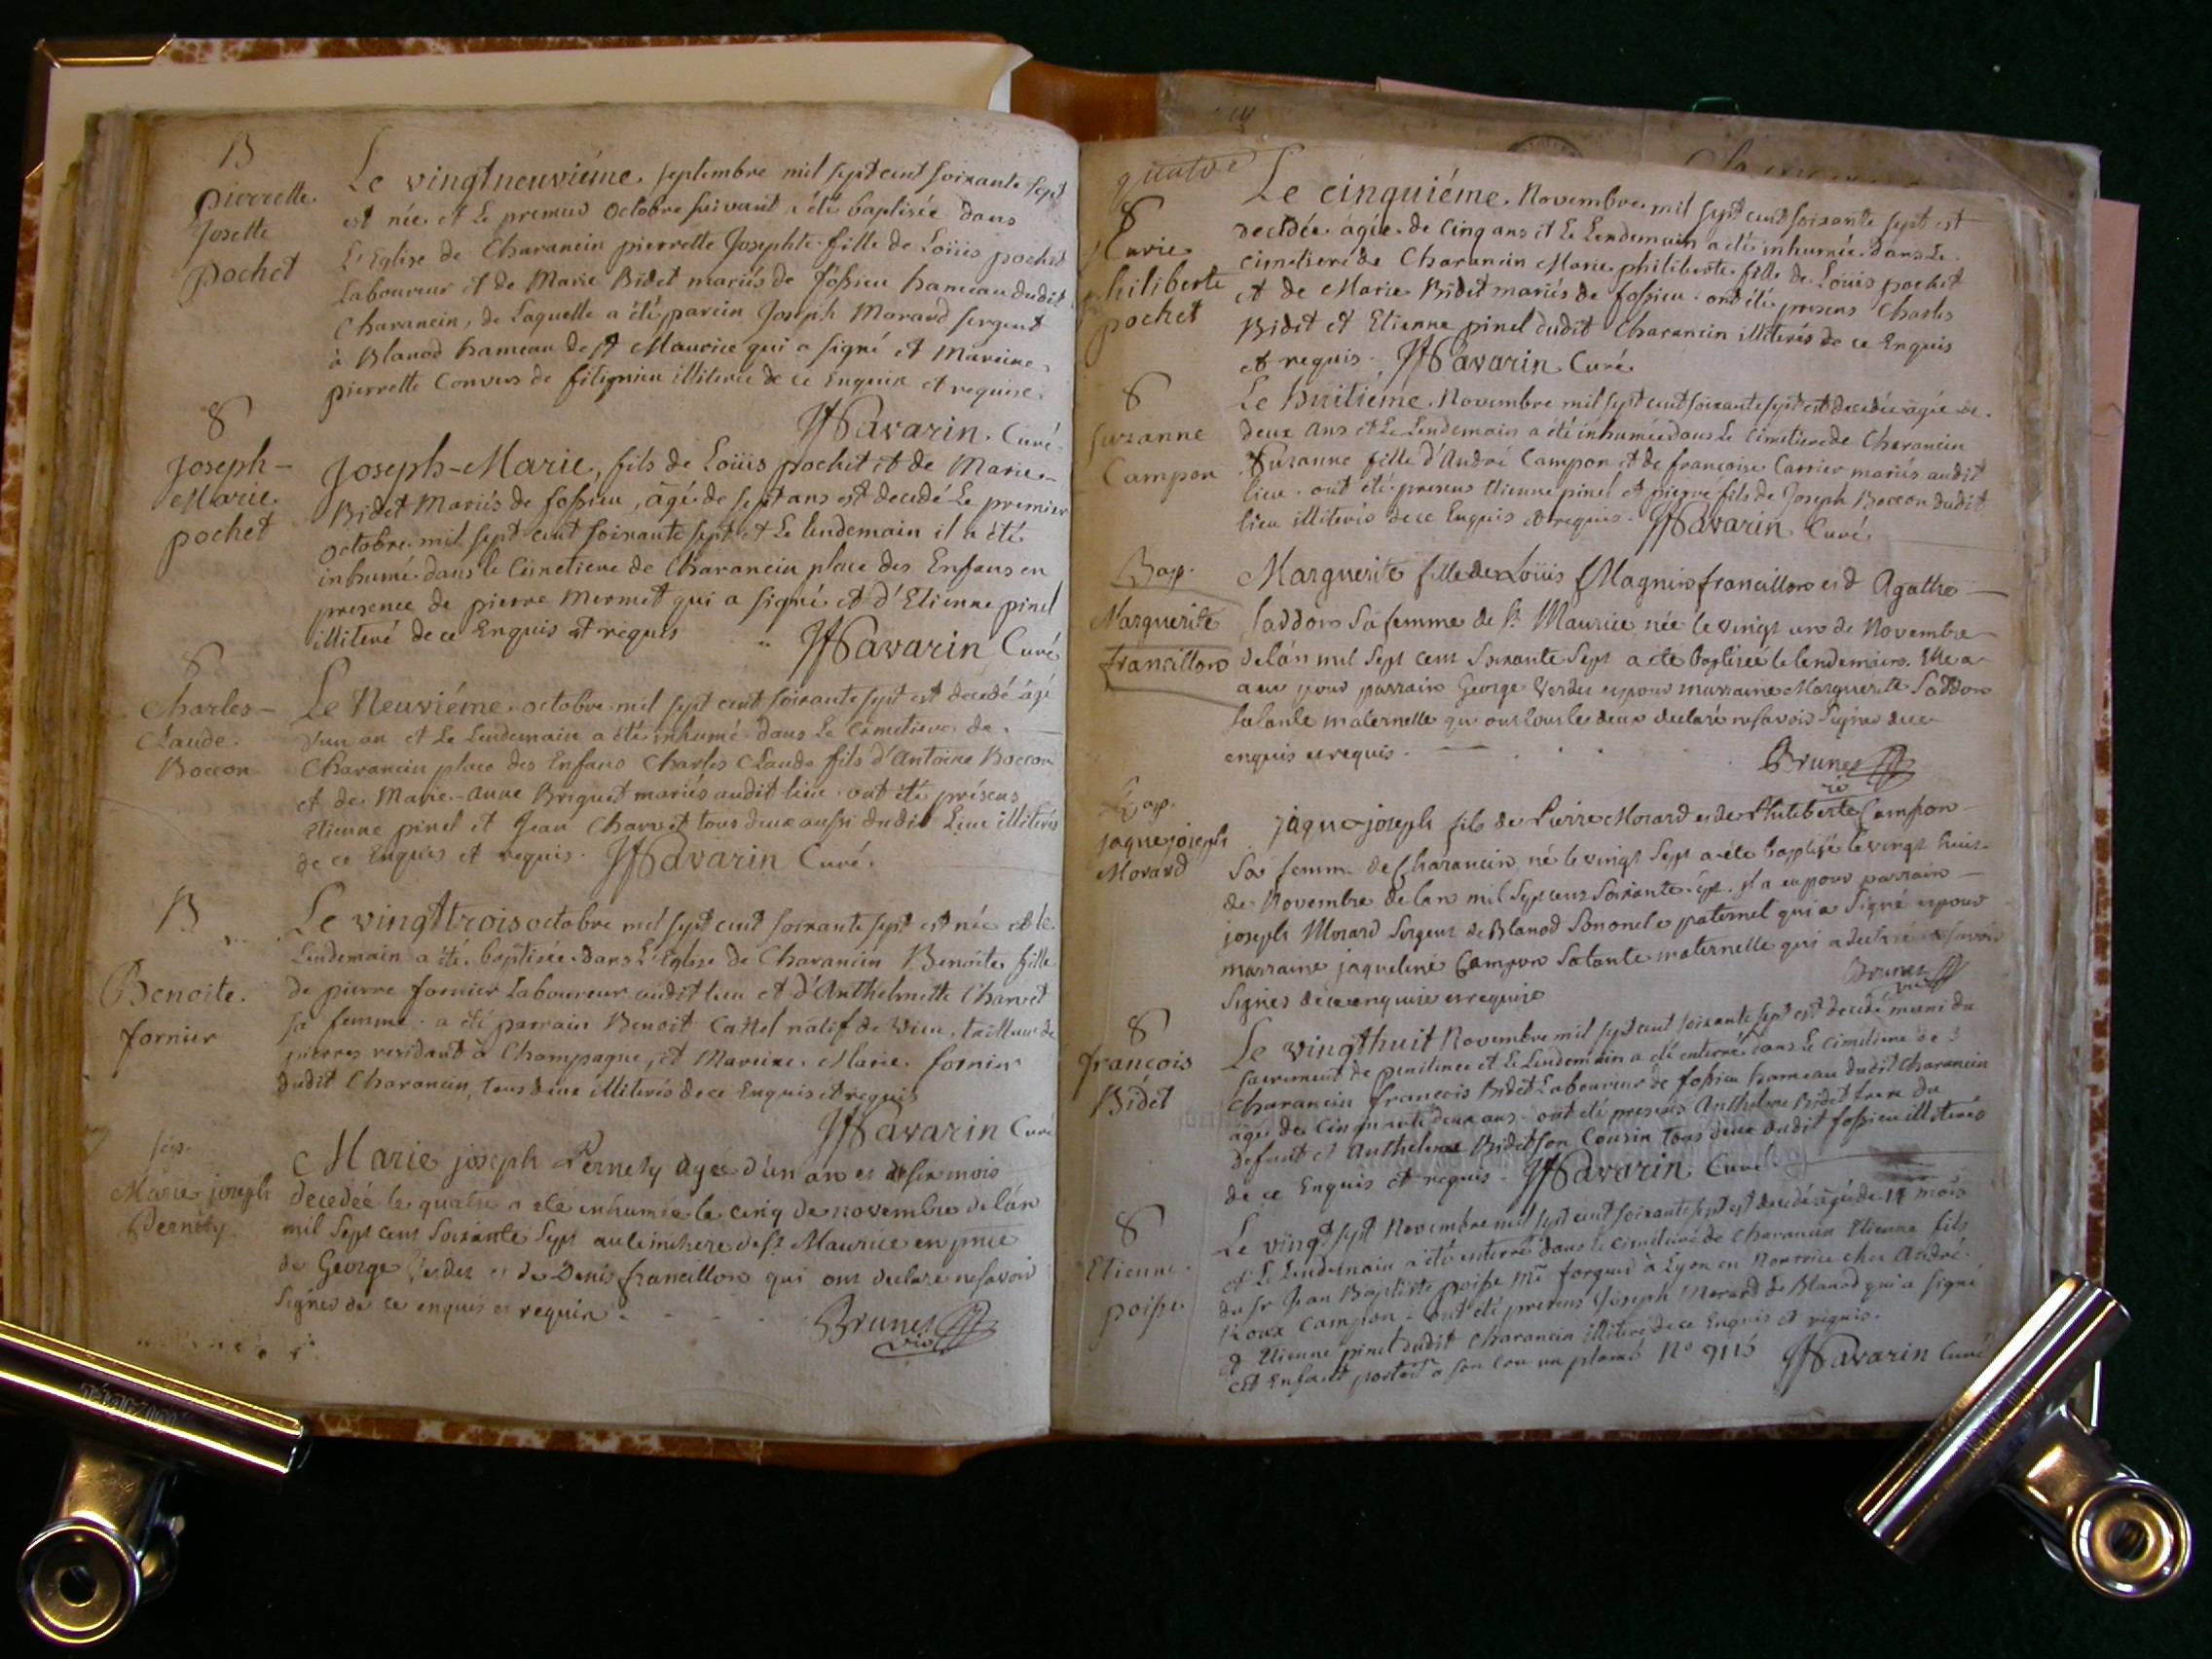 B
pierrette
Josette
pochet
Le vingtneuviéme septembre mil sept cent soixante sept
est née et Le premier octobre suivant a été baptisée dans
L'Eglise de Charancin pierrette Josephte fille de Loüis pochet
Laboureur et de Marie Bidet mariés de fossieu hameau dudit
Charancin, de Laquelle a été parein Joseph Morard sergent
à Blanod hameau de St Maurice qui a signé et Mareine
pierrette Convers de filignieu illiterée de ce Enquise et requise
JfSavarin. Curé
8
joseph-
Marie
pochet
Joseph-Marie, fils de Loüis pochet et de Marie
Bidet Mariés de fossieu, âgé de sept ans est decedé Le premier
octobre mil sept cent soixante sept et Le lendemain il a été
inhumé dans le Cimetiere de Charancin place des Enfans en
presence de pierre Mermet qui a signé et d'Etienne pinel
illiteré de ce Enquis et requis
JfSavarin Curé
8
Charles-
Claude
Boccon
Le Neuviéme octobre mil sept cent soixante sept est decedé âgé
d'un an et Le Lendemain a été inhumé dans Le Cimetiere de
Charancin place des Enfans Charles Claude fils d'Antoine Boccon
et de Marie-Anne Briquet mariés audit lieu ont été présens
Etienne pinel et Jean Charvet tous deux aussi dudit Lieu illiterés
de ce Enquis et requis. JfSavarin Curé.
B
Benoite
fornier
Le vingttrois octobre mil sept cent soixante sept est née et le
Lendemain a été baptisée dans L'Eglise de Charancin Benoite fille
de pierre fornier Laboureur audit lieu et d'Anthelmette Charvet
sa femme a été parrain Benoit Cattel natif de Vieu, tailleur de
pierres residant à Champagne, et Mareine Marie fornier
dudit Charancin, tous deux illiterés de ce Enquis et requis
JfSavarin Curé
sep.
Marie joseph
Pernety
Marie joseph Pernety agée d'un an et de six mois
decedeé le quatre a eté inhumée le cinq de novembre de lán
mil Sept cent Soixante Sept au cimitiere de St Maurice en pnce
de George Verdet et de Denis francillon qui ont declare ne savoir
signer de ce enquis et requis.
Brunet
vic
quatre
8
Marie
philiberte
pochet
Le cinquiéme Novembre mil sept cent soixante sept est
decedée âgée de Cinq ans et Le Lendemain a été inhumée dans Le
cimetiere de Charancin Marie philiberte fille de Loüis pochet
et de Marie Bidet mariés de fossieu ont été presens Charles
Bidet et Etienne pinel dudit Charancin illiterés de ce Enquis
et requis. JfSavarin Curé
8
Suzanne
Campon
Le huitiéme Novembre mil sept cent soixante sept est decedée âgée de
deux ans et Le Lendemain a été inhumée dans Le Cimetiere de Charancin
Suzanne fille d'André Campon et de françoise Carrier mariés audit
lieu ont été presens Etienne pinel et pierre fils de Joseph Boccon dudit
lieu illiterés de ce Enquis et requis. JfSavarin Curé
Bap.
Marguerite
francillon
Marguerite fille de Loüis Magnin francillon et d Agathe
Saddon Sa femme de St Maurice née le vingt un de Novembre
de lán mil Sept cent Soixante Sept a eté baptiseé le lendemain. Elle a
a eu pour parrain George Verdet et pour marraine Marguerite Saddon
Sa tante maternelle qui ont tous les deux declaré ne savoir Signer de ce
enquis et requis.
Brunet
vic
Bap.
jaque joseph
Morard
jaque joseph fils de Pierre Morard et de Philiberte Campon
Sa femme de Charancin né le vingt Sept a eté baptisé le vingt huit
de Novembre de lan mil Sept cent Soixante Sept. il a eu pour parrain
joseph Morard Sergent de Blanod Son oncle paternel qui a Signé et pour
marraine jaqueline Campon Sa tante maternelle qui a declaré ne savoir
Signer de ce enquise et requise
Brunet
vic
8
françois
Bidet
Le vingthuit Novembre mil sept cent soixante sept est decedé muni du
sacrement de penitence et Le Lendemain a été enterré dans Le Cimetiere de
Charancin françois Bidet Laboureur de fossieu hameau dudit Charancin
âgé de Cinquante deux ans ont été presens Anthelme Bidet frere du
defunt et Anthelme Bidet son Cousin tous deux dudit fossieu illiterés
de ce Enquis et requis. JfSavarin Curé
8
Etienne
poisse
Le vingt sept Novembre mil sept cent soixante sept est decedé âgé de 14 mois
et Le Lendemain a été enterré dans le cimetiere de Charancin Etienne fils
du sr Jean Baptiste poisse Me forgeur à Lyon en Nourrice chez André
Campon ont été presens Joseph Morard de Blanod qui a signé
& Etienne pinel dudit Charancin illiteré de ce Enquis et requis.
cet Enfant portoit a son cou un plomb No 9115 JfSavarin Curé